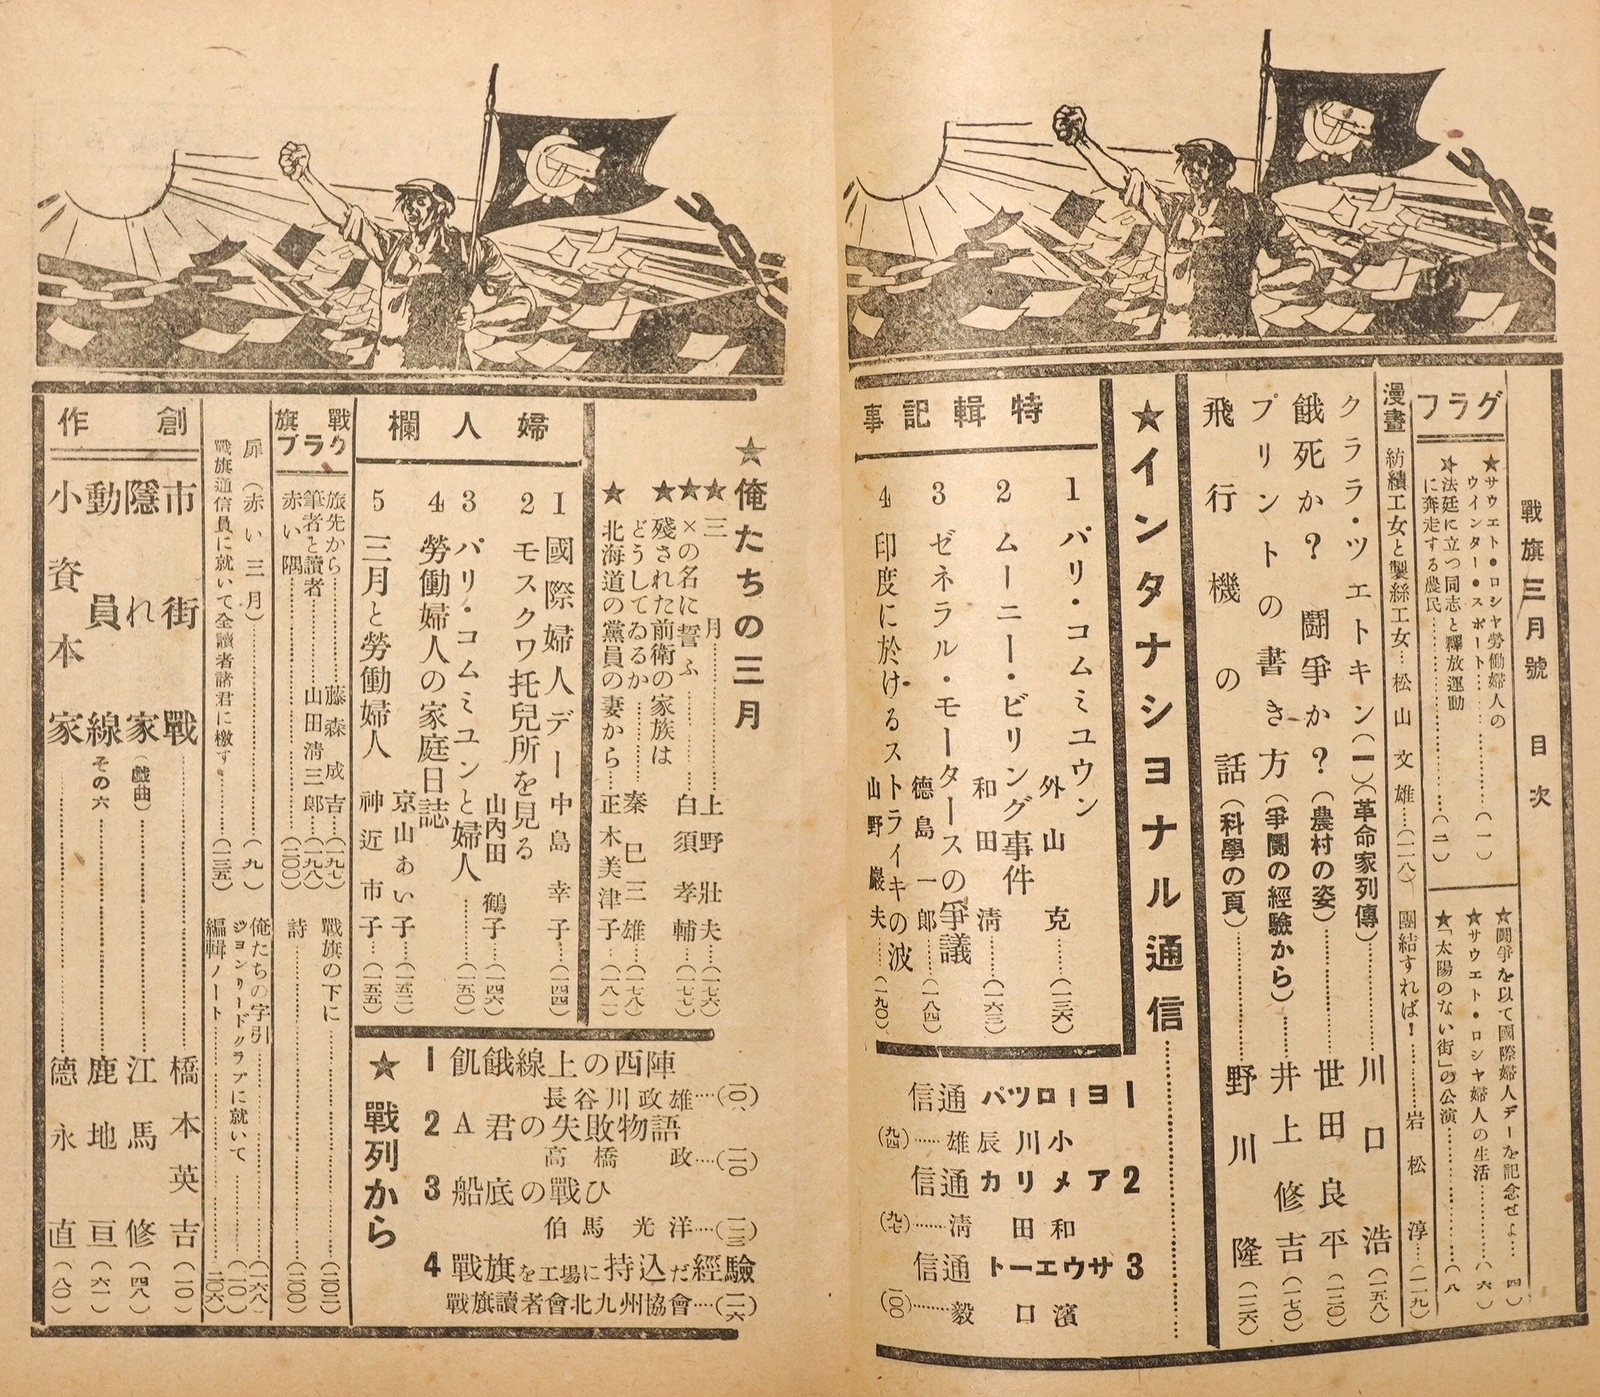 戰旗三月號 目次
グラフ
★サウエト・ロシヤ勞働婦人の
ウインター・スポート……(一)
★法廷に立つ同志と釋放運動
に奔走する農民……(二)
★闘爭を以て國際婦人デーを記念せよ…(四)
★サウエト・ロシヤ婦人の生活……(六)
★「太陽のない街」の公演……(八)
漫畫
紡績工女と製絲工女…松山文雄…(一二八)
團結すれば!……岩松淳…(一一九)
クララ・ツエトキン(一)(革命家列傳)……川口浩(一五八)
餓死か?闘爭か?(農村の姿)……世田良平(一二〇)
プリントの書き方(爭闘の經驗から)……井上修吉(一七〇)
飛行機の話(科學の頁)……野川隆(一二六)
★インタナシヨナル通信
1 ヨーロツパ通信
小川辰雄……(九四)
2 アメリカ通信
和田淸……(九七)
3 サウエート通信
濱口毅……(一〇〇)
特輯記事
1 パリ・コムミユウン
外山克……(一三六)
2 ムーニー・ビリング事件
和田淸……(一六三)
3 ゼネラル・モータースの爭議
德島一郎……(一八四)
4 印度に於けるストライキの波
山野嚴夫……(一九〇)
★俺たちの三月
★三月……上野壯夫…(一七六)
★×の名に誓ふ……白須孝輔…(一七七)
★殘された前衛の家族は
どうしてゐるか……秦巳三雄…(一七八)
★北海道の黨員の妻から…正木美津子…(一八一)
婦人欄
1 國際婦人デー 中島幸子…(一四四)
2 モスクワ托兒所を見る
山内田鶴子…(一四六)
3 パリ・コムミユンと婦人……(一五〇)
4 勞働婦人の家庭日誌
京山あい子…(一五二)
5 三月と勞働婦人 神近市子…(一五五)
★戰列から
1 飢餓線上の西陣
長谷川政雄…
2 A君の失敗物語
高橋政…(一一〇)
3 船底の戰ひ
伯馬光洋…
4 戰旗を工場に持込だ經驗
戰旗讀者會北九州協會…
戰旗グラブ
旅先から……藤森成吉(一九七)
筆者と讀者……山田淸三郎(一九八)
赤い隅……(二〇〇)
戰旗の下に……(二〇三)
詩……(二〇〇)
扉(赤い三月)……(九)
戰旗通信員に就いて全讀者諸君に檄す…(一三五)
俺たちの字引……
ジヨンリードクラブに就いて……
編輯ノート……(二〇六)
創作
市街戰……橋本英吉(一〇)
隱れ家(戯曲)……江馬修(四八)
動員線その六……鹿地亘(六一)
小資本家……德永直(八〇)